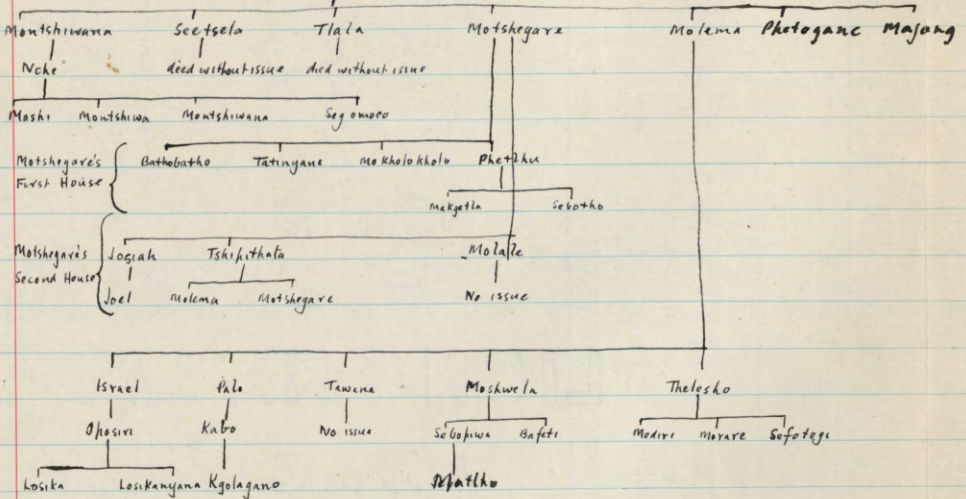 Montshiwana Seetsela Tlala Motshegare Molema Phetogane Majang
Nche died without issue died without issue
Moshi Montshiwa Montshiwana Segomoco
Motshegare's First House Bathobatho Tatinyane Mokholokholo Phetlhu
Makgetla Sebotho
Motshegare's Second House Josiah Tshipithata Molale
Joel Molema Motshegare No issue
Israel Palo Tawana Moshwela Thelesho
Oposiri Kabo No issue Sebopiwa Bafeti Modiri Morare Sefetogi
Losika Losikanyana Kgolagano Matlho